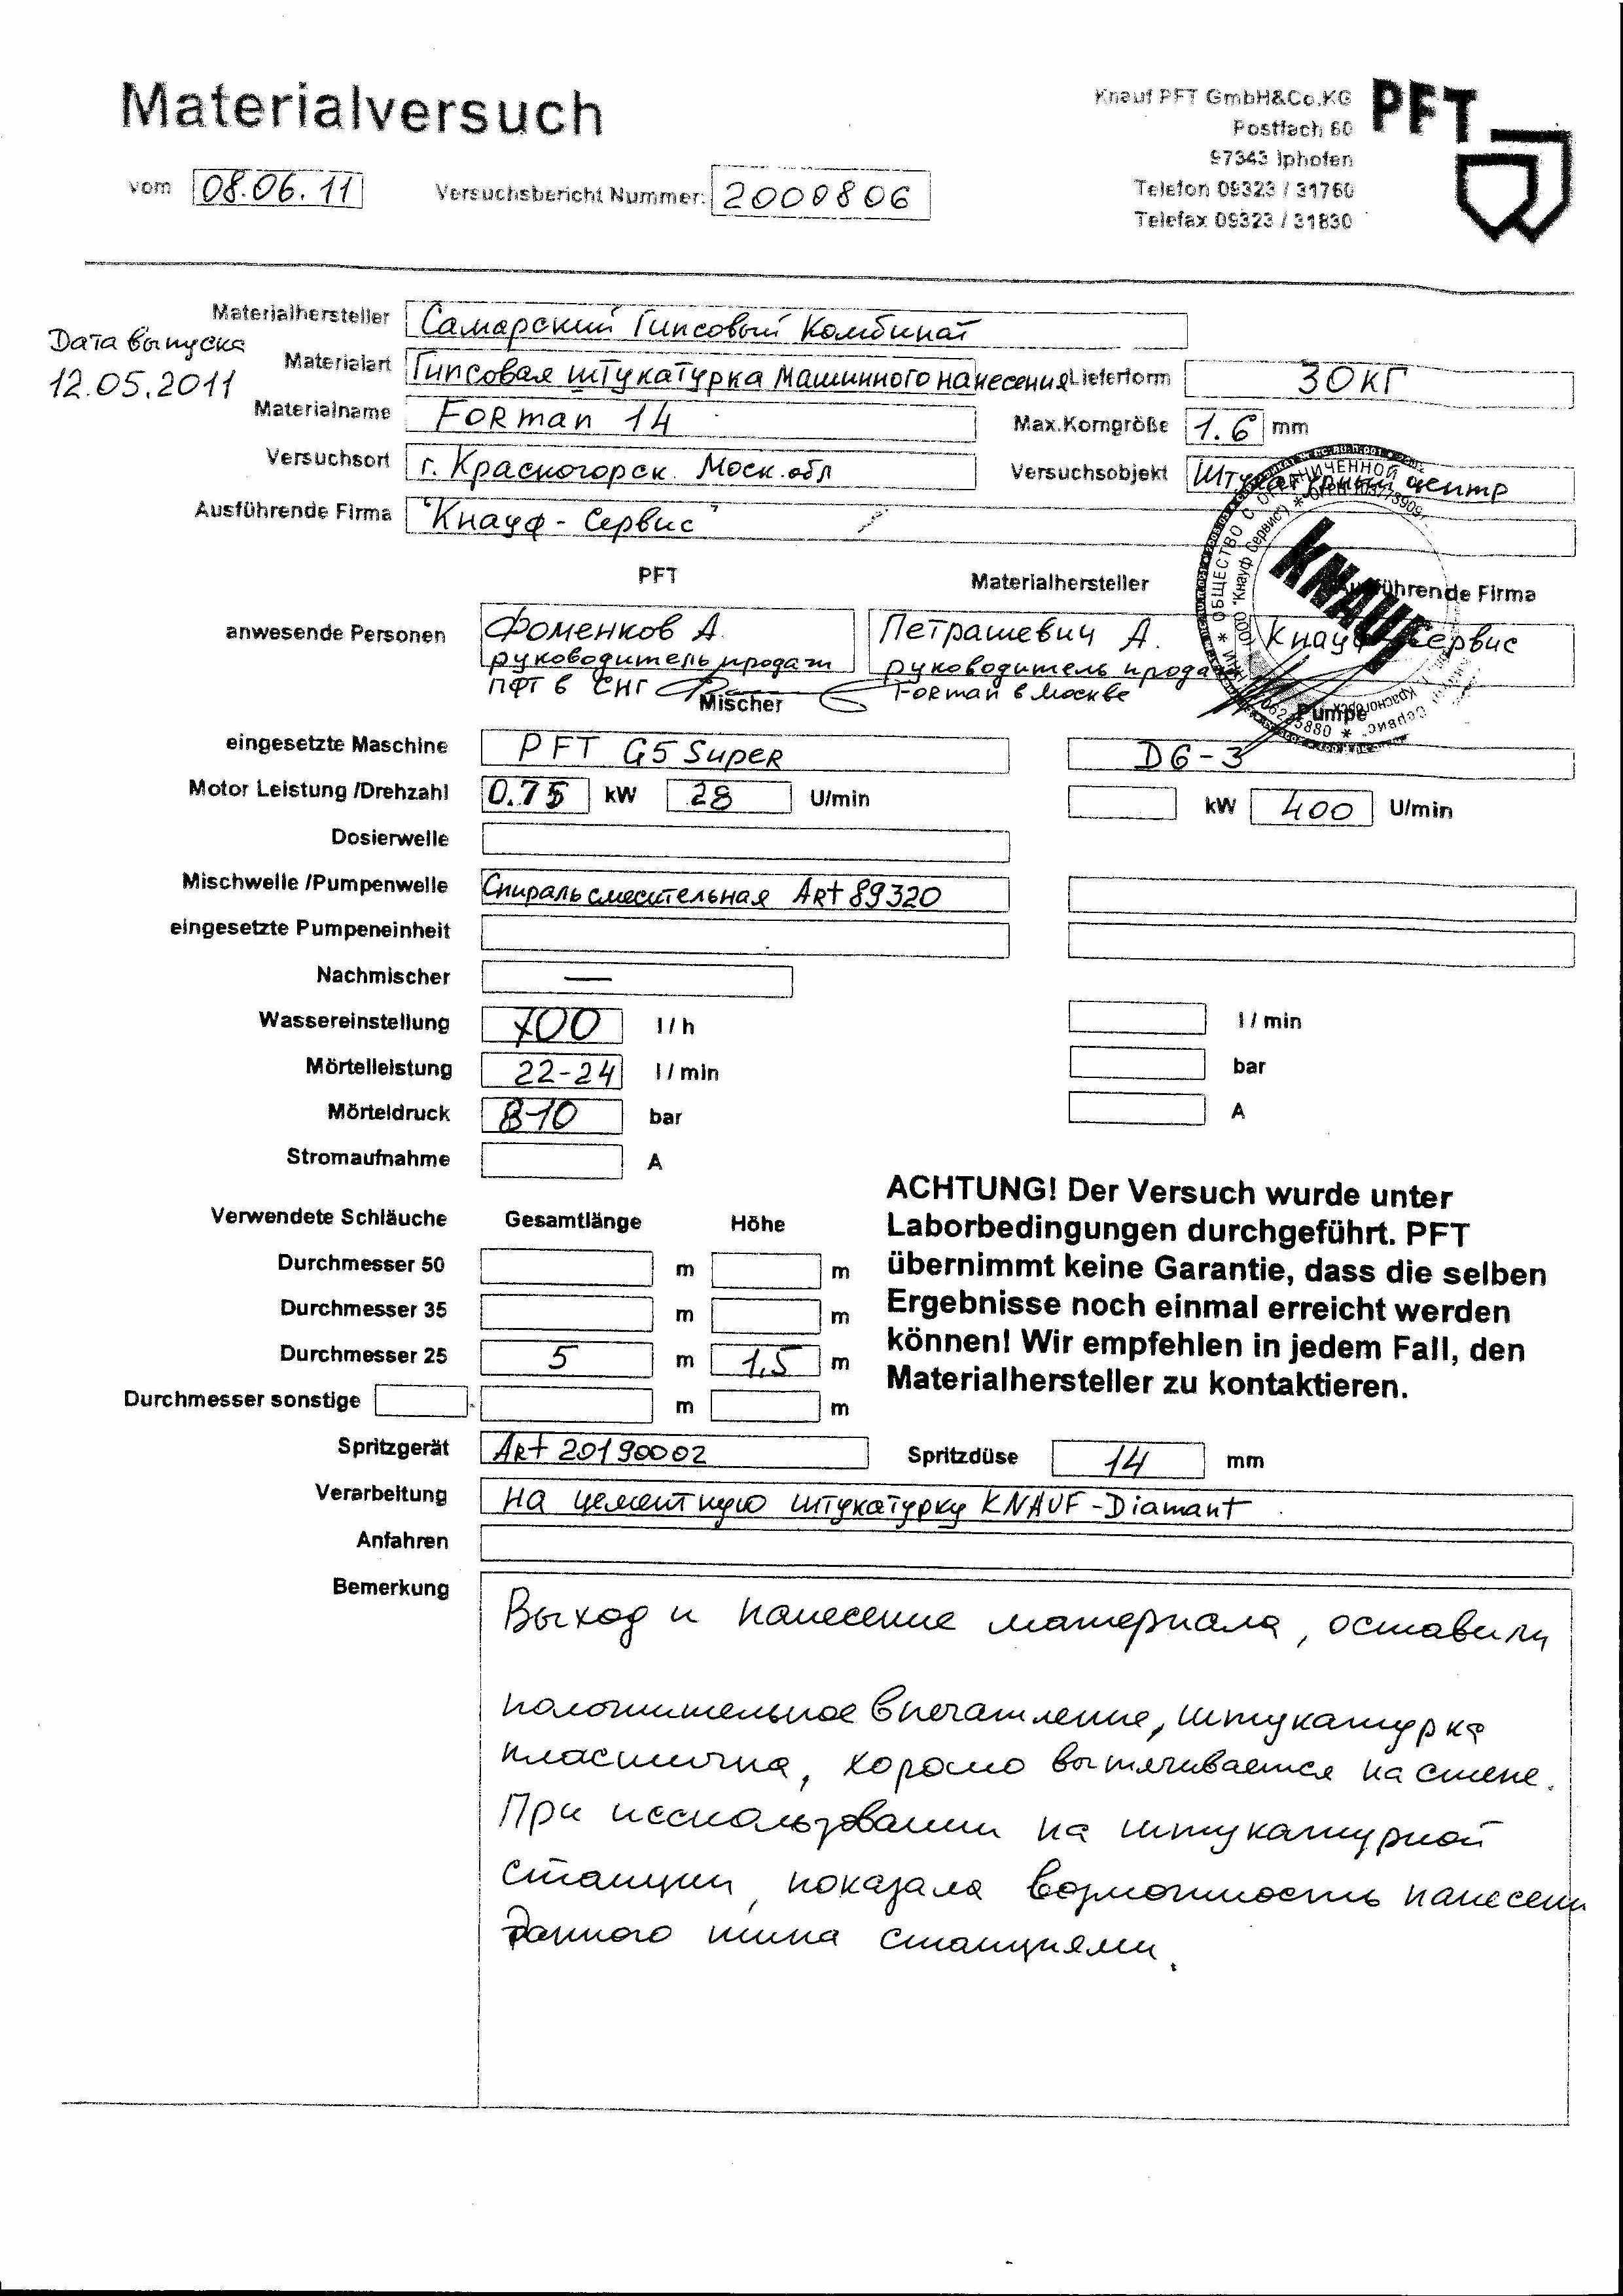 Materialversuch
Knauf PFT GmbH&Co.KG
Postfach 60
97343 Iphofen
Telefon 09323 / 31760
Telefax 09323 / 31830
PFT
vom 08.06.11 Versuchsbericht Nummer: 2009806
Materialhersteller Самарский Гипсовый Комбинат
Дата выпуска
12.05.2011
Materialart Гипсовая штукатурка машинного нанесения Lieferform 30кг
Materialname FORman 14 Max.Korngröße 1.6 mm
Versuchsort г. Красногорск. Моск. обл Versuchsobjekt Штукатурный центр
Ausführende Firma "Кнауф - Сервис"
PFT Materialhersteller Ausführende Firma
anwesende Personen Фоменков А. Петрашевич А. Кнауф Сервис
руководитель продаж руководитель продаж
ПФТ в СНГ FORman в Москве
KNAUF
Mischer Pumpe
eingesetzte Maschine PFT G5 SupeR D6-3
Motor Leistung /Drehzahl 0.75 kW 28 U/min kW 400 U/min
Dosierwelle
Mischwelle /Pumpenwelle Спираль смесительная ARt 89320
eingesetzte Pumpeneinheit
Nachmischer —
Wassereinstellung 700 l / h l / min
Mörtelleistung 22-24 l / min bar
Mörteldruck 8-10 bar A
Stromaufnahme A
Verwendete Schläuche Gesamtlänge Höhe
Durchmesser 50 m m
Durchmesser 35 m m
Durchmesser 25 5 m 1,5 m
Durchmesser sonstige m m
ACHTUNG! Der Versuch wurde unter
Laborbedingungen durchgeführt. PFT
übernimmt keine Garantie, dass die selben
Ergebnisse noch einmal erreicht werden
können! Wir empfehlen in jedem Fall, den
Materialhersteller zu kontaktieren.
Spritzgerät ARt 20190002 Spritzdüse 14 mm
Verarbeitung на цементную штукатурку KNAUF-Diamant
Anfahren
Bemerkung
Выход и нанесение материала, оставили
положительное впечатление, штукатурка
пластична, хорошо вытягивается на стене.
При использовании на штукатурной
станции, показала возможность нанесени
данного типа станциями.